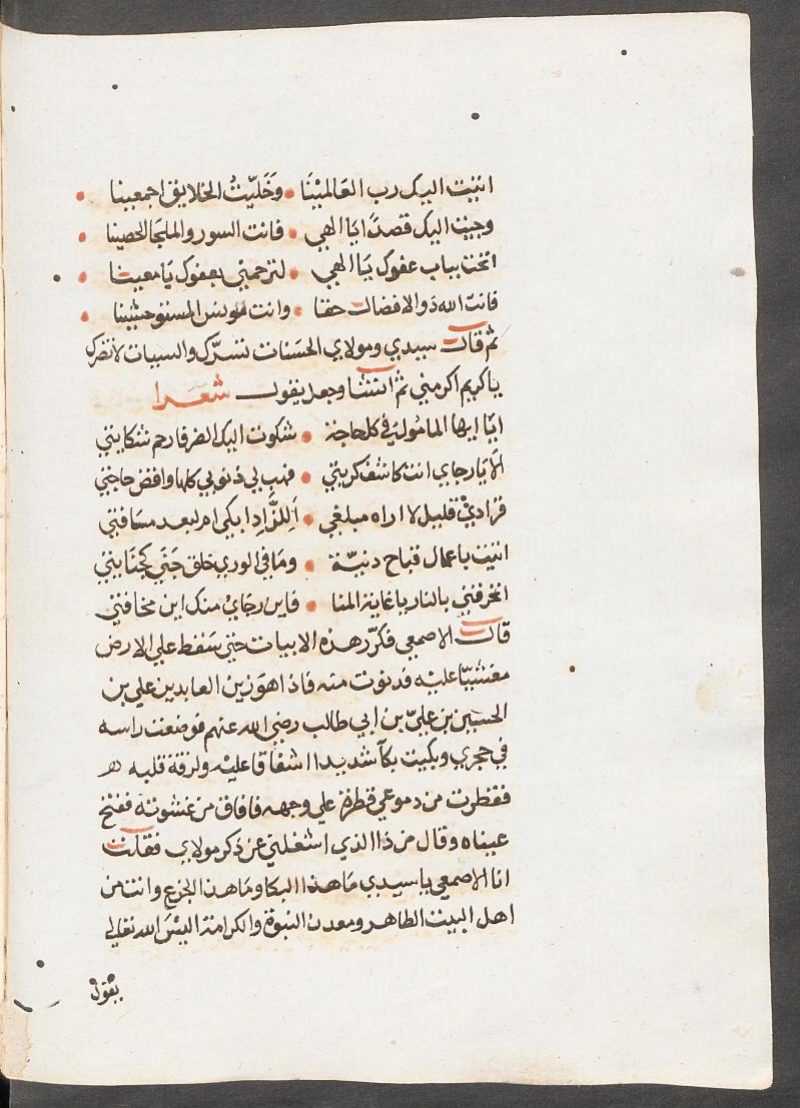 اتيت اليك رب العالمينا • وخَليّتُ الخلايق اجمعينا •
وجيت اليك قصدًا يا الهي • فانت السور والملجا الحصينا •
انخت بباب عفوك يا الهي • لترحمني بعفوك يا معينا •
فانت الله ذو الافضال حقا • وانت مونس المستوحشينا •
ثم قال سيدي ومولاي الحسَنات تسرّك والسيات لا تضرك
يا كريم اكرمني ثم انتشا وجعل يقول شعرا
ايَا ايها المامُول في كل حاجة • شكوت اليك الضر فارحم شكايتي
الَا يا رجاي انت كاشف كربتي • فهب لي ذنوبي كلها واقض حاجتي
فزاديْ قليل لا اراه مبلغي • اَللزَّادِ ابكي ام لبعد مسَافتي
اتيت باعمال قباح دنيّة • ومَا في الوري خلق جَنَي كجنَايتي
اتحرقني بالنار يا غاية المنا • فاين رجَايْ منك اين مخافتي
قال الاصمعي فكرّر هذه الابيات حتي سَقط علي الارض
مغشيًا عليه فدنوت منه فاذا هوَ زين العابدين علي بن
الحسين بن عليّ بن ابي طالب رضي الله عنهم فوضعت راسه
في حجري وبكيت بكآ شديدا اشفاقا عليه ولرقة قلبه ه
فقطرت من دموعي قطرة علي وجهه فافاق من غشوته ففتح
عيناه وقال من ذا الذي اشغلني عن ذكر مولاي فقلت
انا الاصمعي يا سيدي مَا هذا البكا ومَا هذا الجزع وانت من
اهل البيت الطاهر ومعدن النبوة والكرامة اليسَ الله تعالي
يقول